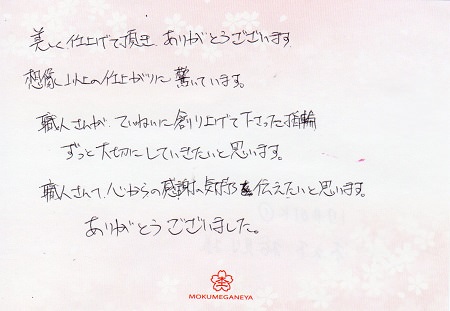 美しく仕上げて頂き、ありがとうございます
想像以上の仕上がりに驚いています。
職人さんが、ていねいに創り上げて下さった指輪
ずっと大切にしていきたいと思います。
職人さんへ、心からの感謝の気持ちを伝えたいと思います。
ありがとうございました。
MOKUMEGANEYA